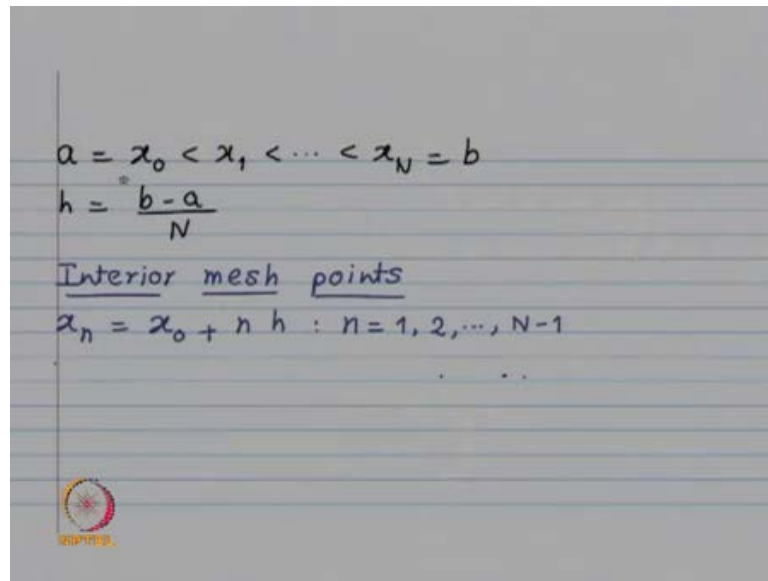 a = x₀ < x₁ < ⋯ < x_N = b
h = (b - a)/N
Interior mesh points
xₙ = x₀ + n h : n = 1, 2, ⋯, N-1